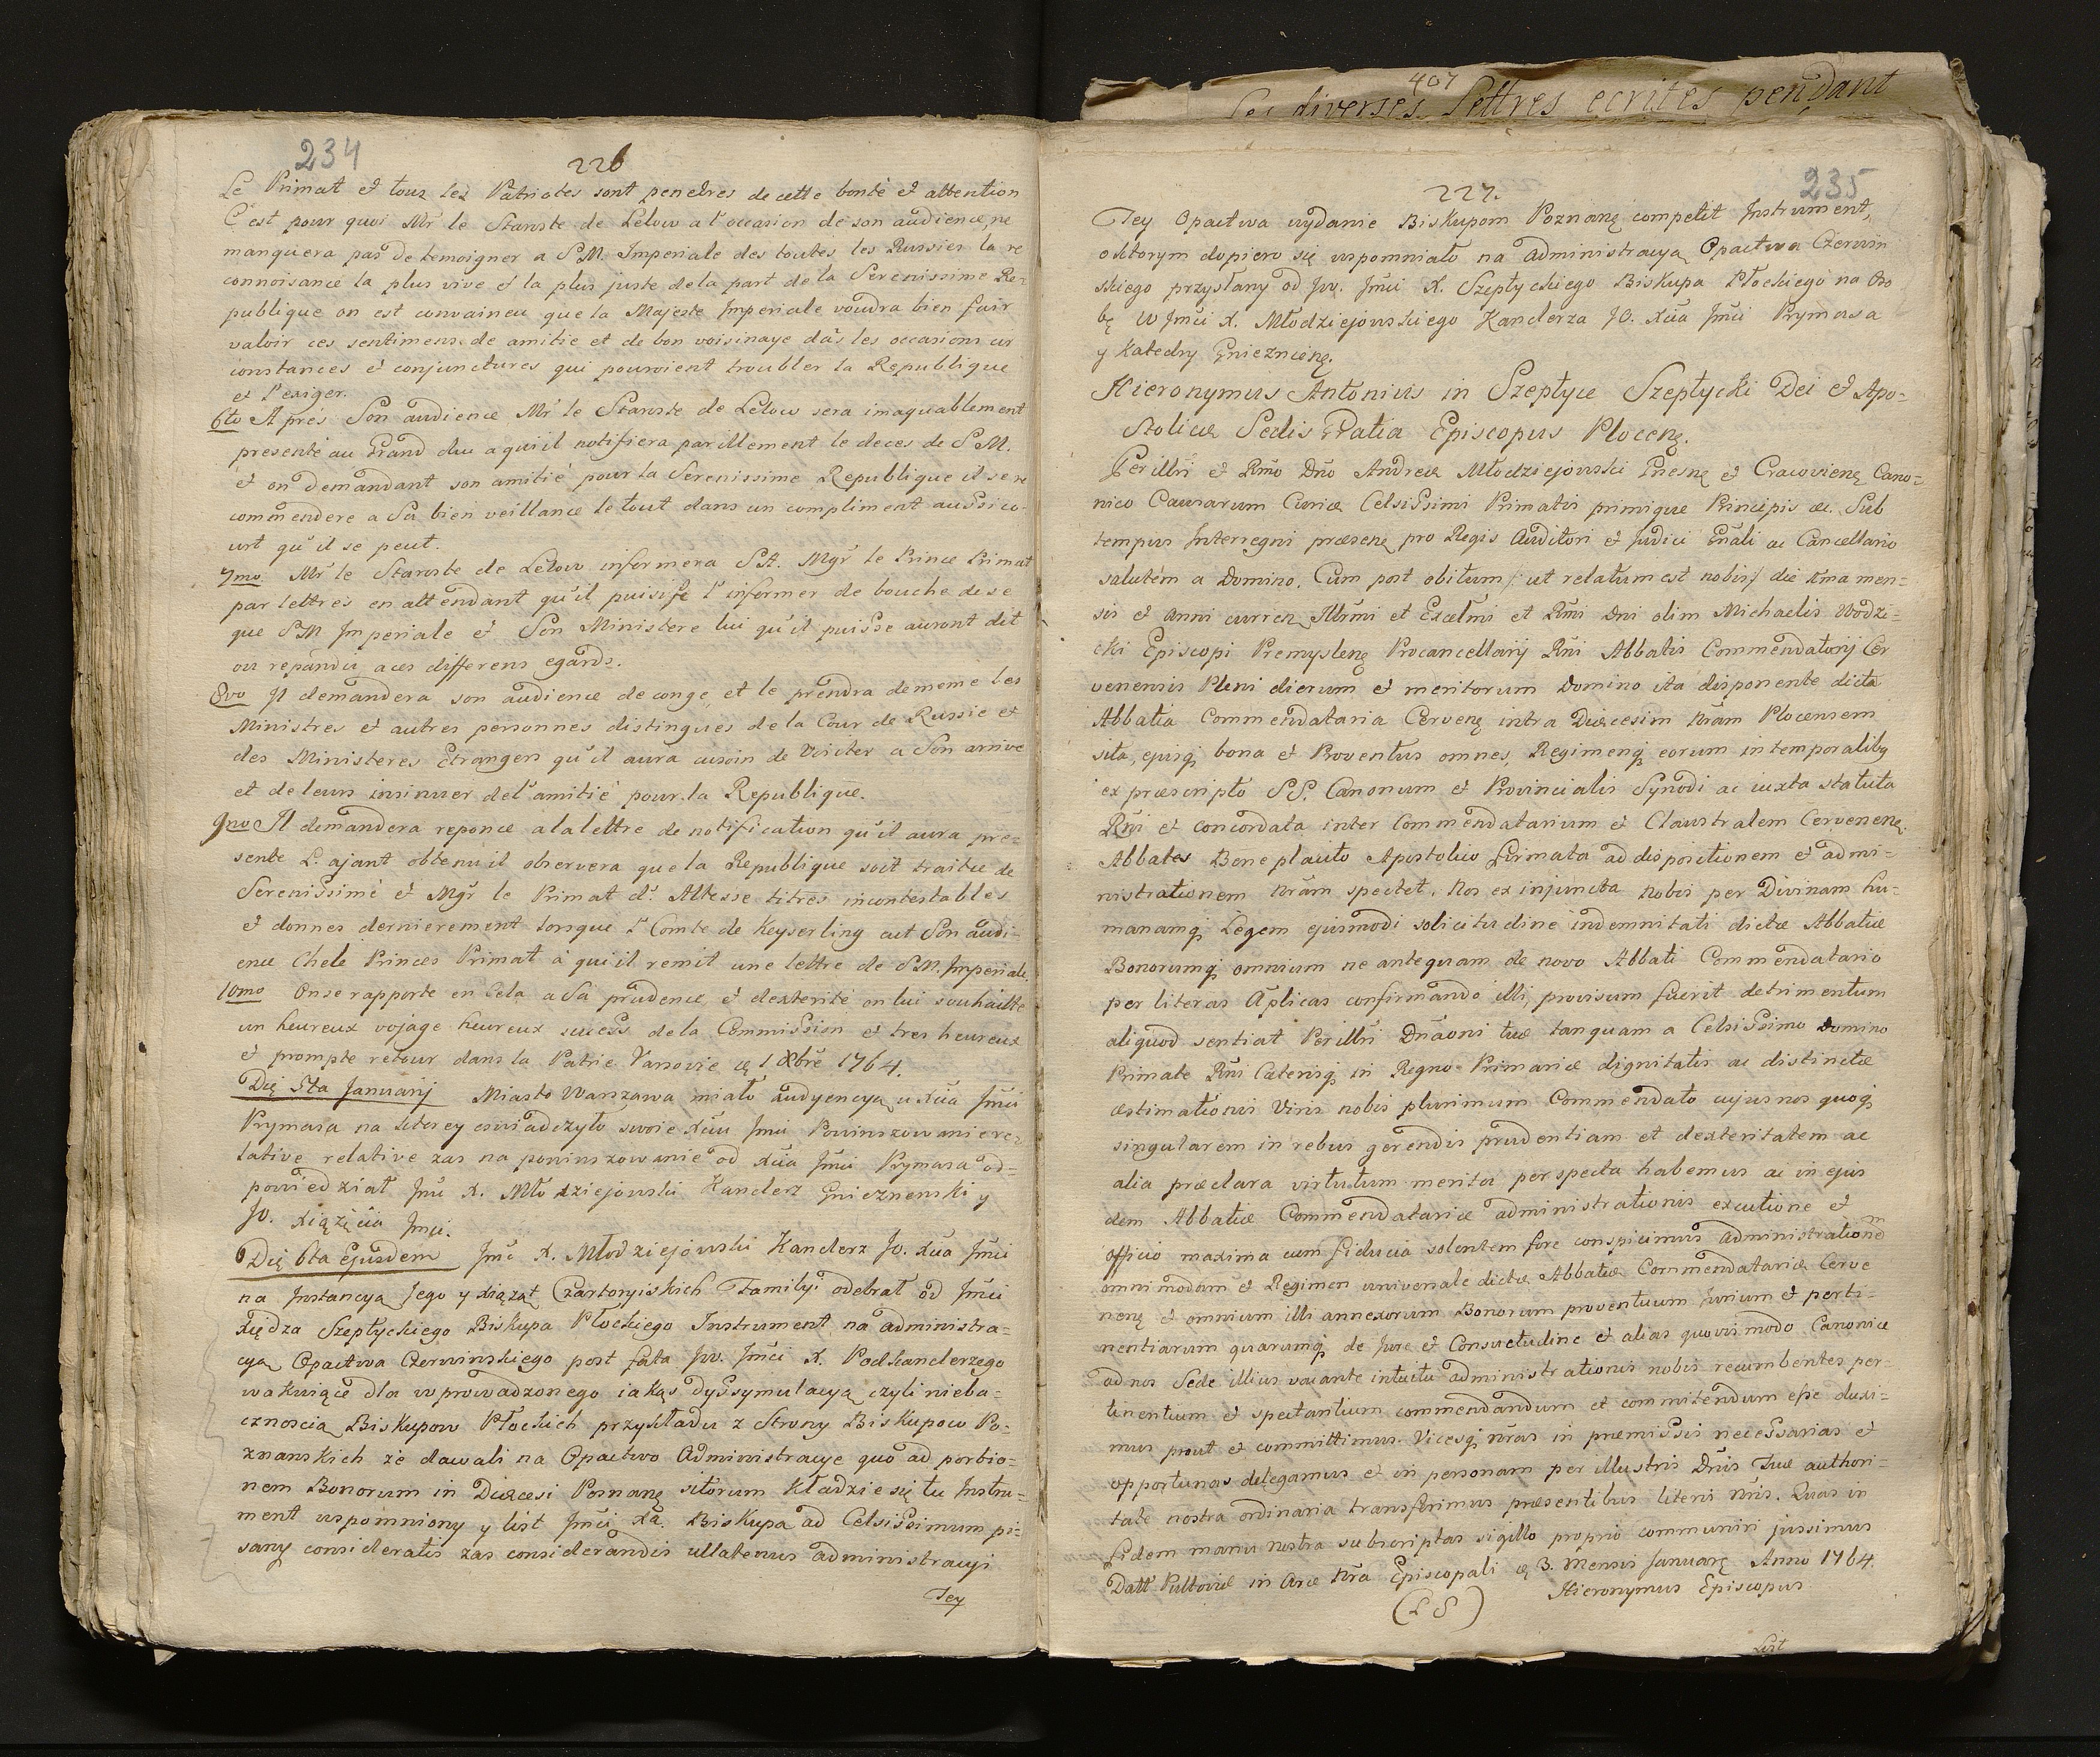 234
226
Le Primat et tous les Patriotes sont penetres de cette bonté et attention
C'est pour quoi Mr le Staroste de Lelow a l'occasion de son audience, ne
manquera pas de temoigner a S M. Imperiale des toutes les Russies la re
connoisance la plus vive et la plus juste de la part de la Serenissime Re-
publique on est convaincu que la Majeste Imperiale voudra bien fair
valoir ces sentimens de amitie et de bon voisinaye dãs les occasions cir
constances et conjunctures qui pouroient troubler la Republique
et l'exiger.
6to A prés Son audience Mr le Staroste de Lelow sera imaquablement
presenté au Grand duc a qui il notifiera parillement le deces de S M.
et en demandant son amitié pour la Serenissime Republique il se re
commendere a Sa bien veillance le tout dans un compliment aussi co-
urt qu'il se peut.
7mo Mr le Staroste de Lelow informera S A. Mgr le Prince Primat
par lettres en attendant qu'il puisse l'informer de bouche de se
que S M Imperiale et Son Ministere lui qu'il puisse auront dit
ou repandu a ces differens egards.
8vo Il demandera son audience de conge, et le prendra de meme les
Ministres et autres personnes distingues de la Cour de Russie et
des Ministeres Etrangers qu'il aura eusoin de Visiter a Son arrive
et de leurs insinuer de l'amitié pour la Republique.
9no Il demandera reponce a la lettre de notification qu'il aura pre-
sente L'ajant obtenu il observera que la Republique soit traitee de
Serenissime et Mgr le Primat d'Altesse titres incontestables
et donnes dernierement lorsque l'Comte de Keyserling eut Son audi-
ence Chele Princes Primat a qui il remit une lettre de S M. Imperiale.
10mo On se rapporte en Cela a Sa prudence et dexterité on lui souhaitte
un heureux vojage heureux success de la Commission et tres heureux
et prompte retour dans la Patrie Varsovie 1 Xbre 1764.
Die 5ta Januarij Miasto Warszawa miało audyencyą u Xcia Jmci
Prymasa na ktorey oswiadczyło swoie Xciu Jmci Powinszowanie re-
lative relative zas na powinszowanie od Xcia Jmci Prymasa od=
powiedział Jmc X. Młodziejowski Kanclerz Gnieznenski y
JO. Xiążęcia Jmci.
Die 6ta Ejusdem Jmc X. Młodziejowski Kanclerz Jo. Xcia Jmci
na Instancyą Jego y Xiążąt Czartoryiskich Familyi odebrał od Jmci
Xiędza Szeptyckiego Biskupa Płockiego Instrument na administra=
cyą Opactwa Czerwinskiego post fata Jw. Jmci X. Podkanclerzego
wakuiące dla wprowadzonego iakąs dyssymulacyą czyli nieba=
cznoscią Biskupow Płockich przykładu z Strony Biskupow Po-
znanskich że dawali na Opactwo Administracye quo ad portio-
nem Bonorum in Diæcesi Posnanę sitorum Kładzie się tu Instru-
ment wspomniony y list Jmci Xa. Biskupa ad Celsissimum pi-
sany consideratis zas considerandis ullatenus administracyi
Tey
407
Les diverses Lettres ecrites pendant
235
227.
Tey Opactwa wydanie Biskupom Poznanę competit Instrument,
o ktorym dopiero się wspomniało na administracyą Opactwa Czerwin
skiego przysłany od Jw. Jmci X. Szeptyckiego Biskupa Płockiego na Oso
bę W Jmci X. Młodziejowskiego Kanclerza JO. Xcia Jmci Prymasa
y Katedry Gnieznienę.
Hieronymus Antonius in Szeptyce Szeptycki Dei et Apo-
stolicæ Sedis Gratia Episcopus Plocenę.
Perillri et Rmo Dno Andreæ Młodziejowski Gnesnę et Cracovienę Cano=
nico Causarum Curiæ Celsissimi Primatis primique Principis &. Sub
tempus Interregni præsenę pro Regis Auditori et Judici Gnali ac Cancellario
salutem a Domino. Cum post obitum /: ut relatum est nobis :/ die 1ma men=
sis et anni curren Illrmi et Excelmi et Rmi Dni olim Michaelis Wodzi=
cki Episcopi Premyslenę Procancellarij Rni Abbatis Commendatorij Cer
venensis Pleni dierum et meritorum Domino ita disponente dicta
Abbatia Commendataria Cervenę intra Diæcesim nrãm Plocensem
sita, ejusq bona et Proventus omnes, Regimenq eorum in temporalibg
ex præscripto SS. Canonum et Provincialis Synodi ac iuxta statuta
Rni et concordata inter Commendatarium et Claustralem Cervenenę
Abbates Beneplacito Apostolico firmata ad dispositionem et admi=
nistrationem nrãm spectet. Nos ex injuncta nobis per Divinam hu-
manamq Legem ejusmodi solicitudine indemnitati dictæ Abbatiæ
Bonorumq omnium ne antequam de novo Abbati Commendatario
per literas Aplicas confirmando illi, provisum fuerit detrimentum
aliquod sentiat Perillri Dnãoni tuæ tanquam a Celsissimo Domino
Primate Rni Cæterisq in Regno Primariæ dignitatis ac distinctæ
æstimationis Viris nobis plurimum Commendato cujus nos quoq
singularem in rebus gerendis prudentiam et dexteritatem ac
alia præclara virtutum merita perspecta habemus ac in ejus
dem Abbatiæ Commendatariæ administrationis executione et
officio maxima cum fiducia solentem fore conspicimus administrationem
omnimodam et Regimen universale dictæ Abbatiæ Commendatariæ Cerve
nenę et omnium illi annexorum Bonorum proventuum Jurium et perti-
nentiarum quarumq de Jure et Consvetudine et alias quovismodo Canonice
ad nos Sede illius vacante intuitu administrationis nobis recumbentes per-
tinentium et spectantium commendandum et commitendum esse duxi=
mus prout et committimus. Vicesq nras in præmissis necessarias et
opportunas delegamus et in personam per illustris Dnis Tuæ authori=
tate nostra ordinaria transferimus præsentibus literis nris. Quas in
Fidem manu nostra subscriptas sigillo proprio communiri jussimus
Datt Pultoviæ in Arce Nra Episcopali 3. Mensis Januarę Anno 1764.
Hieronymus Episcopus
(L S)
List